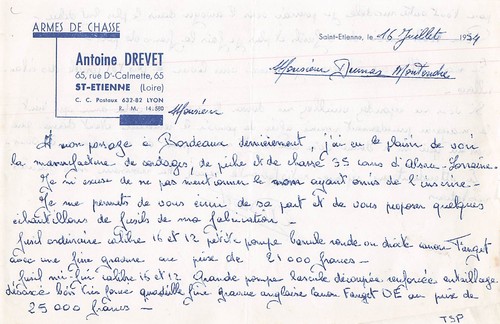 ARMES DE CHASSE
Saint-Etienne, le 16 Juillet 1954
Antoine DREVET
65, rue Dr-Calmette, 65
ST-ETIENNE (Loire)
C. C. Postaux 632-82 LYON
R. M. 14.580
Monsieur Montendre
Monsieur
A mon passage à Bordeaux dernièrement, j'ai eu le plaisir de voir
la manufacture de cordages, de pêche et de chasse 35 cours d'Alsace-Lorraine.
Je m'excuse de ne pas mentionner le nom ayant omis de l'inscrire -
Je me permets de vous écrire de sa part et de vous proposer quelques
échantillons de fusils de ma fabrication -
Fusil ordinaire calibre 16 et 12 petite pompe bascule ronde ou droite canon Farget
avec une fine gravure au prix de 21000 francs -
Fusil mi fin calibre 16 et 12 Grande pompe bascule découpée renforcée entaillage
bois très foncé quadrillé fine gravure anglaise canon Farget DE au prix de
25000 francs -
TSP